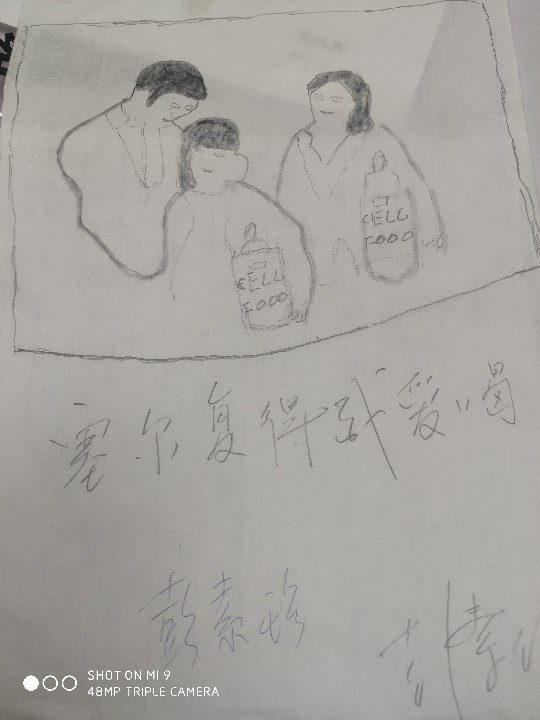 CELL
FOOD
CELL
FOOD
塞尔复得我爱喝
彭素
SHOT ON MI 9
48MP TRIPLE CAMERA